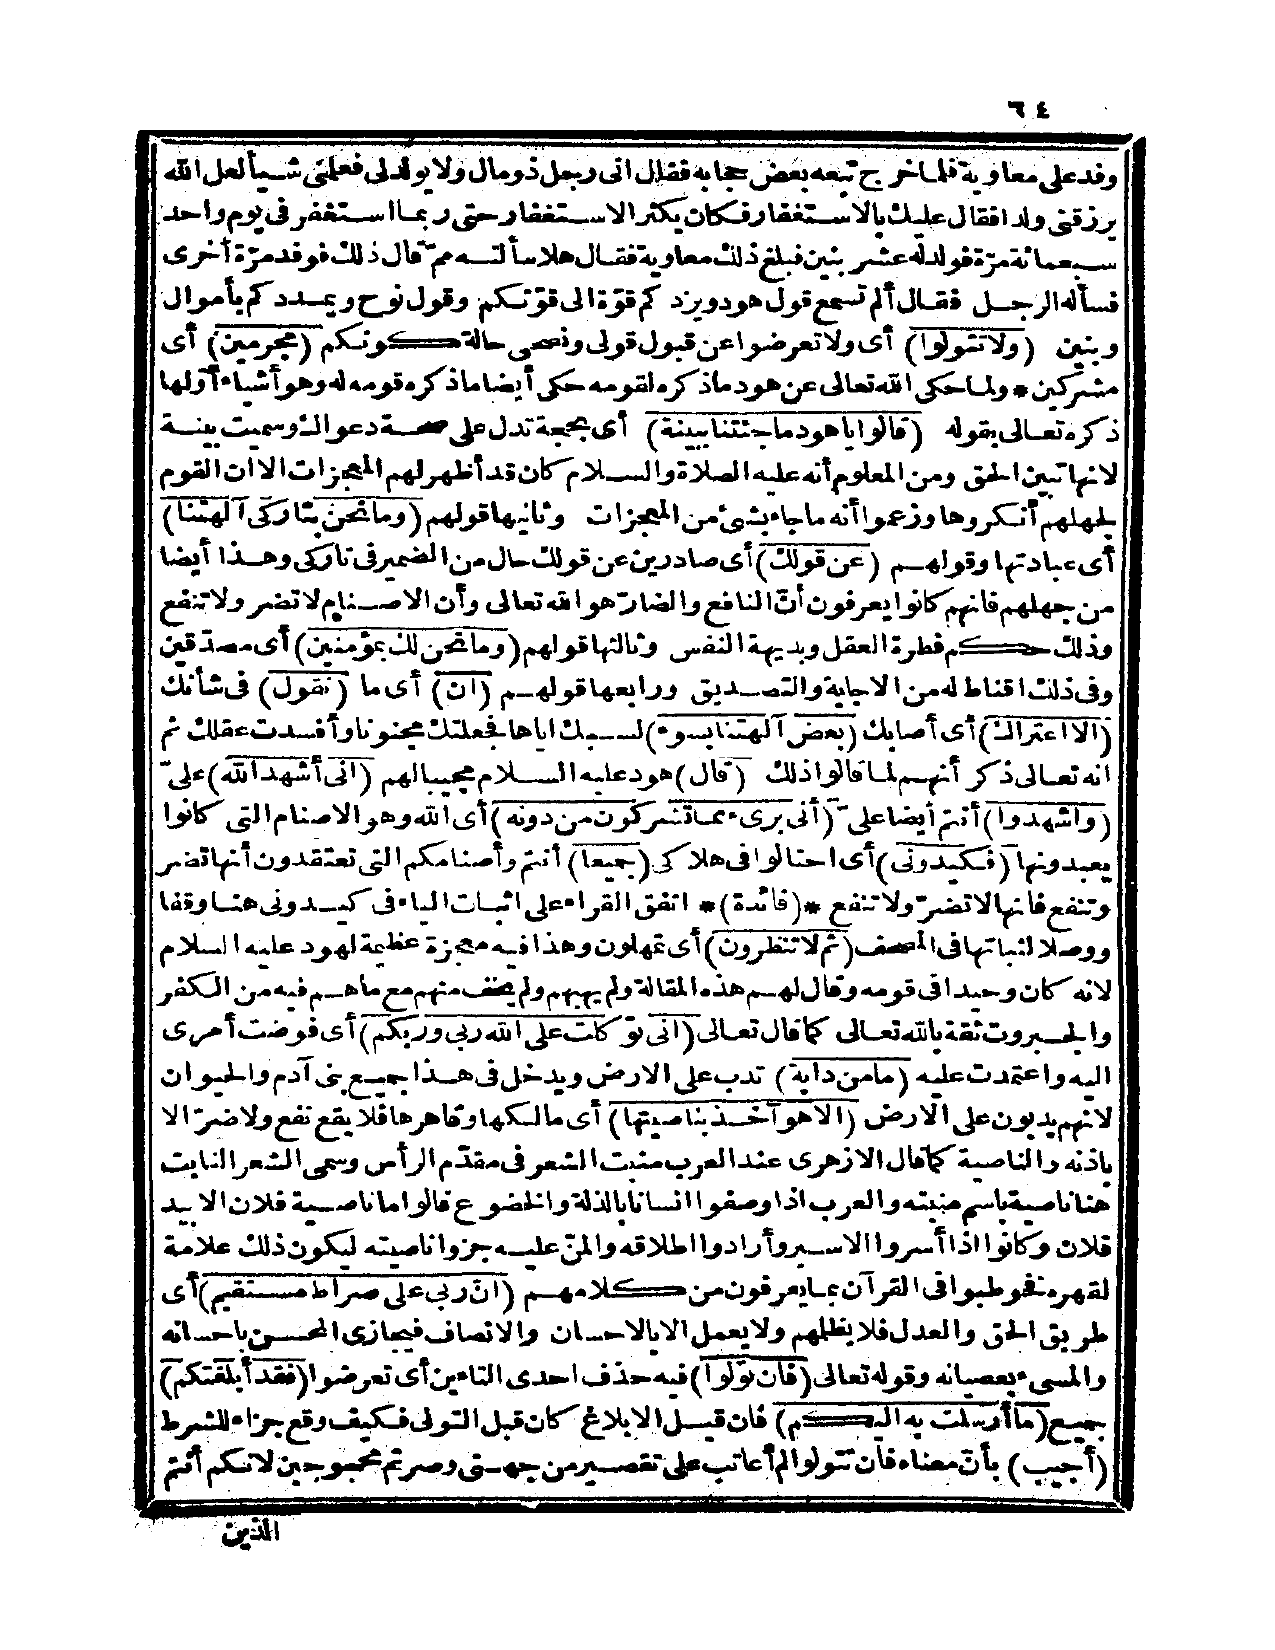 ٦٤
وفد على معاوية فلما خرج تبعه بعض حجابه فقال انى رجل ذو مال ولا يولد لى فعلمنى شيأ لعل الله
يرزقنى ولدا فقال عليك بالاستغفار فكان يكثر الاستغفار حتى ربما استغفر فى يوم واحد
سبعمائة مرة فولد له عشر بنين فبلغ ذلك معاوية فقال هلا سألته مم قال ذلك فوفد مرّة أخرى
فسأله الرجل فقال ألم تسمع قول هود ويزد كم قوّة الى قوّتكم وقول نوح ويمدد كم بأموال
وبنين (ولا تتولوا) أى ولا تعرضوا عن قبول قولى ونصحى حالة كونكم (مجرمين) أى
مشركين * ولما حكى الله تعالى عن هود ما ذكره لقومه حكى أيضا ما ذكره قومه له وهو أشياء أوّلها
ذكره تعالى بقوله (قالوا يا هود ما جئتنا ببينة) أى بحجة تدل على صحة دعواك وسميت بينة
لانها تبين الحق ومن المعلوم أنه عليه الصلاة والسلام كان قد أظهر لهم المعجزات الا ان القوم
لجهلهم أنكروها وزعموا أنه ما جاء بشئ من المعجزات وثانيها قولهم (وما نحن بتاركى آلهتنا)
أى عبادتها وقولهم (عن قولك) أى صادرين عن قولك حال من الضمير فى تاركى وهذا أيضا
من جهلهم فانهم كانوا يعرفون أنّ النافع والضارّ هو الله تعالى وأن الاصنام لا تضر ولا تنفع
وذلك حكم فطرة العقل وبديهة النفس وثالثها قولهم (وما نحن لك بمؤمنين) أى مصدّقين
وفى ذلك اقناط له من الاجابة والتصديق ورابعها قولهم (ان) أى ما (نقول) فى شأنك
(الا اعتراك) أى أصابك (بعض آلهتنا بسوء) لسبك اياها فجعلتك مجنونا وأفسدت عقلك ثم
انه تعالى ذكر أنهم لما قالوا ذلك (قال) هود عليه السلام مجيبا لهم (انى أشهد الله) علىّ
(واشهدوا) أنتم أيضا علىّ (أنى برىء مما تشركون من دونه) أى الله وهو الاصنام التى كانوا
يعبدونها (فكيدونى) أى احتالوا فى هلاكى (جميعا) أنتم وأصنامكم التى تعتقدون أنها تضر
وتنفع فانها لا تضرّ ولا تنفع *(فائدة)* اتفق القراء على اثبات الياء فى كيدونى هنا وقفا
ووصلا لثباتها فى المصحف (ثم لا تنظرون) أى تمهلون وهذا فيه معجزة عظيمة لهود عليه السلام
لانه كان وحيدا فى قومه وقال لهم هذه المقالة ولم يهبهم ولم يخف منهم مع ما هم فيه من الكفر
والجبروت ثقة بالله تعالى كما قال تعالى (انى توكلت على الله ربى وربكم) أى فوضت أمرى
اليه واعتمدت عليه (ما من دابة) تدب على الارض ويدخل فى هذا جميع بنى آدم والحيوان
لانهم يدبون على الارض (الا هو آخذ بناصيتها) أى مالكها وقاهرها فلا يقع نفع ولا ضرّ الا
باذنه والناصية كما قال الازهرى عند العرب منبت الشعر فى مقدّم الرأس وسمى الشعر النابت
هنا ناصية باسم منبته والعرب اذا وصفوا انسانا بالذلة والخضوع قالوا ما ناصية فلان الا بيد
فلان وكانوا اذا أسروا الاسير وأرادوا اطلاقه والمنّ عليه جزوا ناصيته ليكون ذلك علامة
لقهره فخوطبوا فى القرآن بما يعرفون من كلامهم (انّ ربى على صراط مستقيم) أى
طريق الحق والعدل فلا يظلمهم ولا يعمل الا بالاحسان والانصاف فيجازى المحسن باحسانه
والمسىء بعصيانه وقوله تعالى (فان تولوا) فيه حذف احدى التاءين أى تعرضوا (فقد أبلغتكم)
جميع (ما أرسلت به اليكم) فان قيل الابلاغ كان قبل التولى فكيف وقع جزاء للشرط
(أجيب) بأنّ معناه فان تتولوا لم أعاتب على تقصير من جهتى وصرتم محجوجين لانكم أنتم
الذين